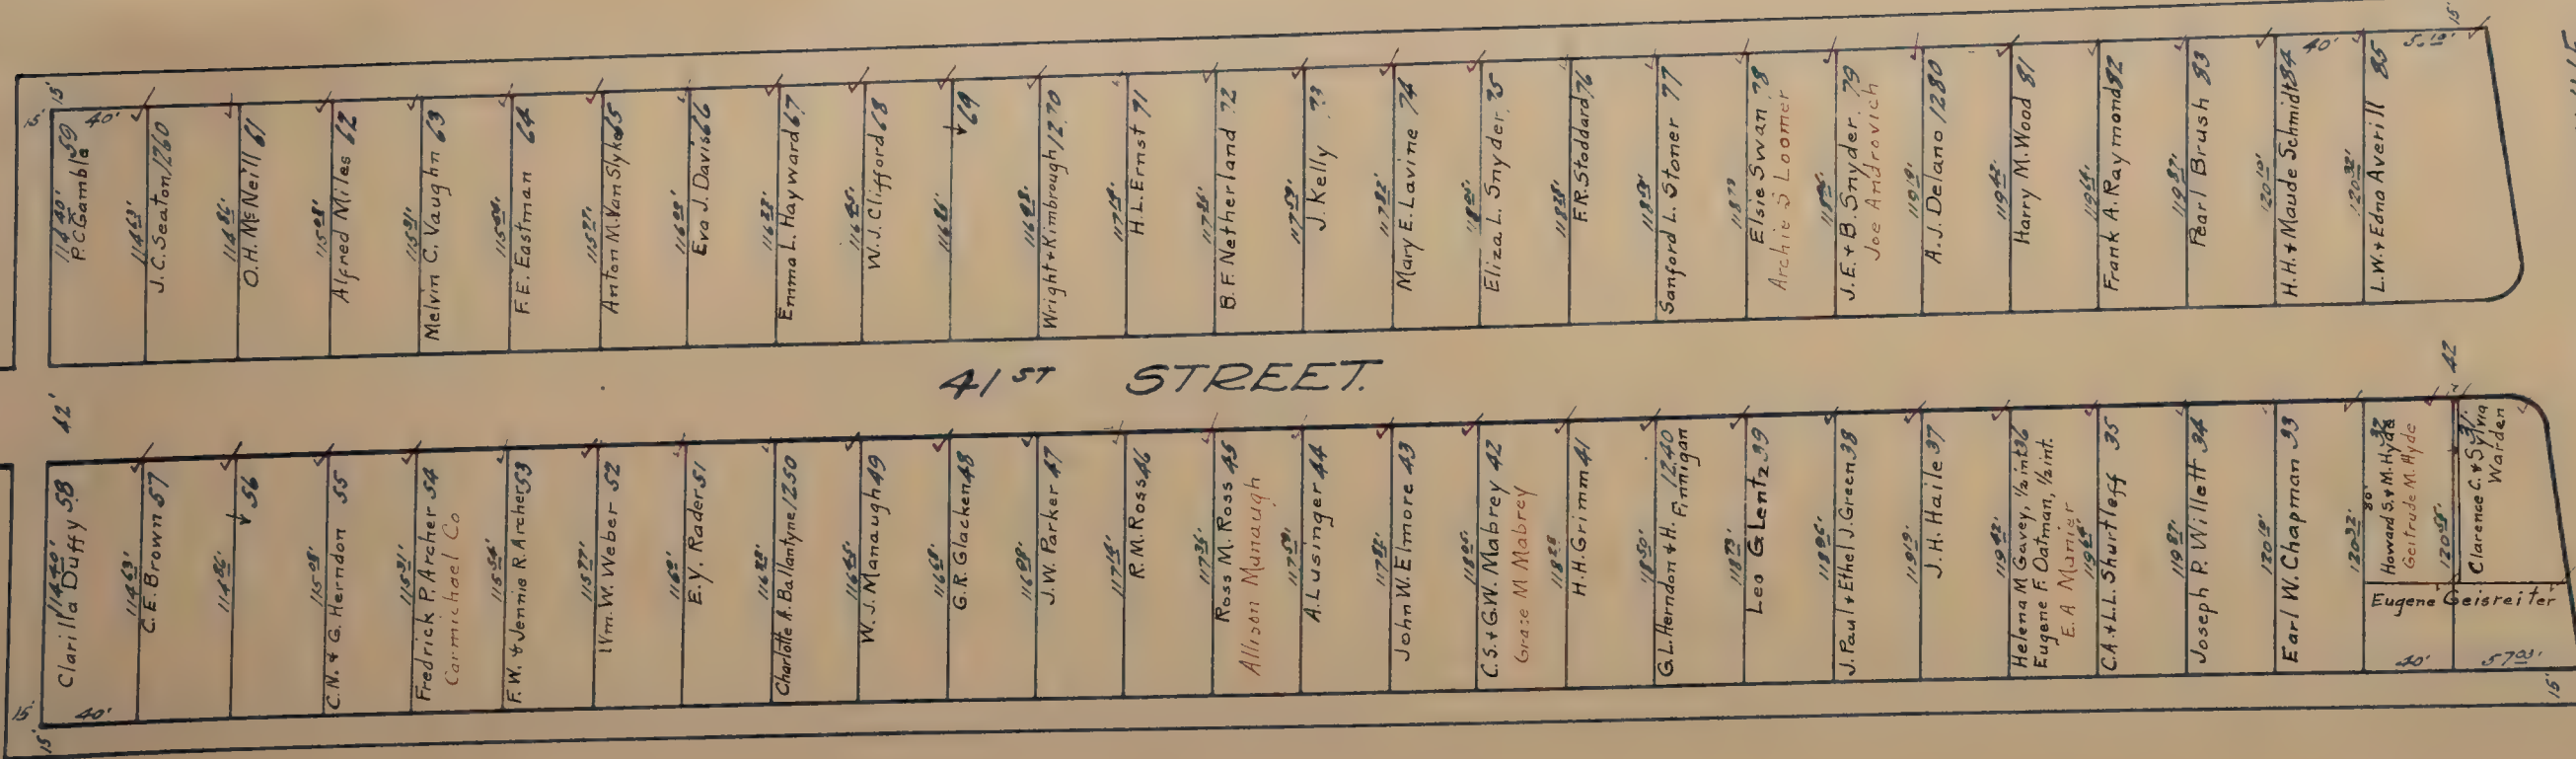 15'
5.
40'
114 40'
P.C. Gamble 59
114 63'
J.C. Seaton 1260
114 86'
O.H. McNeill 61
115 08'
Alfred Miles 62
115 31'
Melvin C. Vaughn 63
115 54'
F.E. Eastman 64
115 77'
Anton M. Van Slyke 65
116 00'
Eva J. Davis 66
116 23'
Emma L. Hayward 67
116 45'
W.J. Clifford 68
116 68'
↓ 69
Wright & Kimbrough 1270
117 14'
H.L. Ernst 71
117 36'
B.F. Netherland 72
117 59'
J. Kelly 73
117 82'
Mary E. Lavine 74
118 05'
Eliza L. Snyder 75
118 28'
F.R. Stoddard 76
118 50'
Sanford L. Stoner 77
118 73
Elsie Swan 78
Archie S Loomer
118 96'
J.E. & B. Snyder 79
Joe Androvich
119 19'
A.J. Delano 1280
119 42'
Harry M. Wood 81
119 64'
Frank A. Raymond 82
119 87'
Pearl Brush 83
120 10'
H.H. & Maude Schmidt 84
40'
120 32'
L.W. & Edna Averill 85
15'
42'
41ST STREET.
42
114 40'
Clarilla Duffy 58
114 63'
C.E. Brown 57
114 86'
↓ 56
115 08'
C.N. & G. Herndon 55
115 31'
Fredrick P. Archer 54
Carmichael Co
115 54'
F.W. & Jennie R. Archer 53
115 77'
Wm. W. Weber 52
E.Y. Rader 51
Charlotte A. Ballantyne 1250
116 45'
W.J. Manaugh 49
116 68'
G.R. Glacken 48
J.W. Parker 47
117 14'
R.M. Ross 46
117 36'
Ross M. Ross 45
Allison Munaugh
117 59'
A. Lusinger 44
117 82'
John W. Elmore 43
118 05'
C.S. & G.W. Mabrey 42
Grace M Mabrey
118 28
H.H. Grimm 41
118 50'
G.L. Herndon & H. 1240
Finnigan
118 73'
Leo G Lentz 39
118 96'
J. Paul & Ethel J. Green 38
119 19'
J.H. Haile 37
119 42'
Helena M Geavey, 1/2 int 36
Eugene F. Oatman, 1/2 int.
E.A. Manier
119 64'
C.A. & L.L. Shurtleff 35
119 87'
Joseph P. Willett 34
120 10'
Earl W. Chapman 33
120 32'
80'
Howard S. & M. Hyde 32
Geitrude M. Hyde
120 55'
Clarence C. & Sylvia 31
Warden
Eugene Geisreiter
40'
57 03'
15'
15'
40'
15'